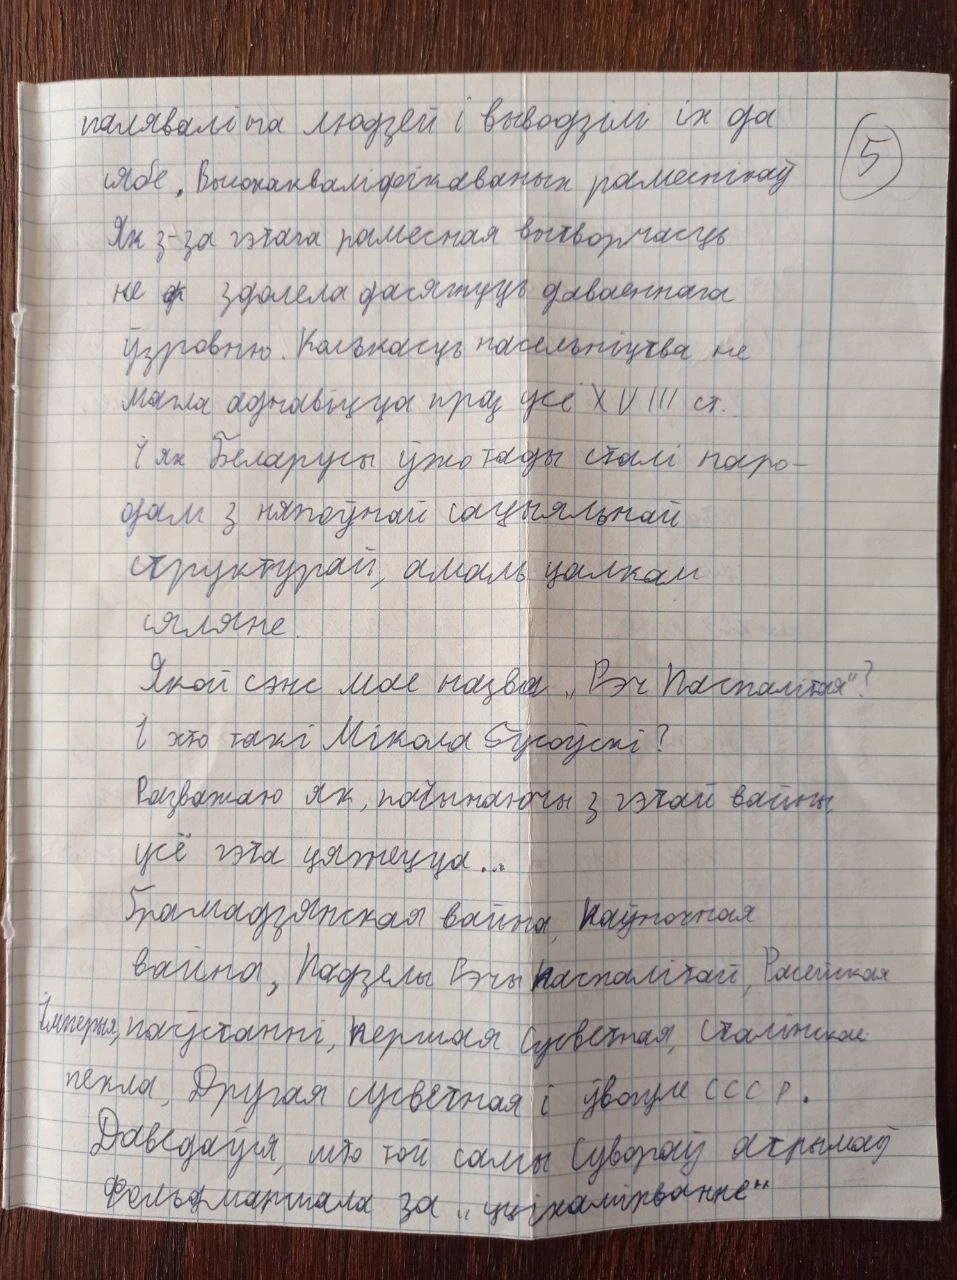 палявалі на людзей і выводзілі іх да
5
сябе, Высокакваліфікаваных рамеснікаў
Як з-за гэтага рамесная вытворчасць
не здолела дасягнуць даваеннага
ўзроўню. Колькасць насельніцтва не
магла аднавіцца праз усё XVIII ст.
І як Беларусы ўжо тады сталі наро-
дам з няпоўнай сацыяльнай
структурай, амаль цалкам
сяляне.
Якой сэнс мае назва „Рэч Паспалітая"?
І хто такі Мікола Гусоўскі?
Разважаю як, пачынаючы з гэтай вайны
усё гэта цяжецца...
Грамадзянская вайна, Паўночная
вайна, Падзелы Рэчы Паспалітай, Расейская
Імперыя, паўстанні, Першая Сусветная, Сталінскае
пекла, Другая сусветная і ўвогуле СССР.
Даведаўся, што той самы Сувораў атрымаў
Фельдмаршала за „уціхамірванне"